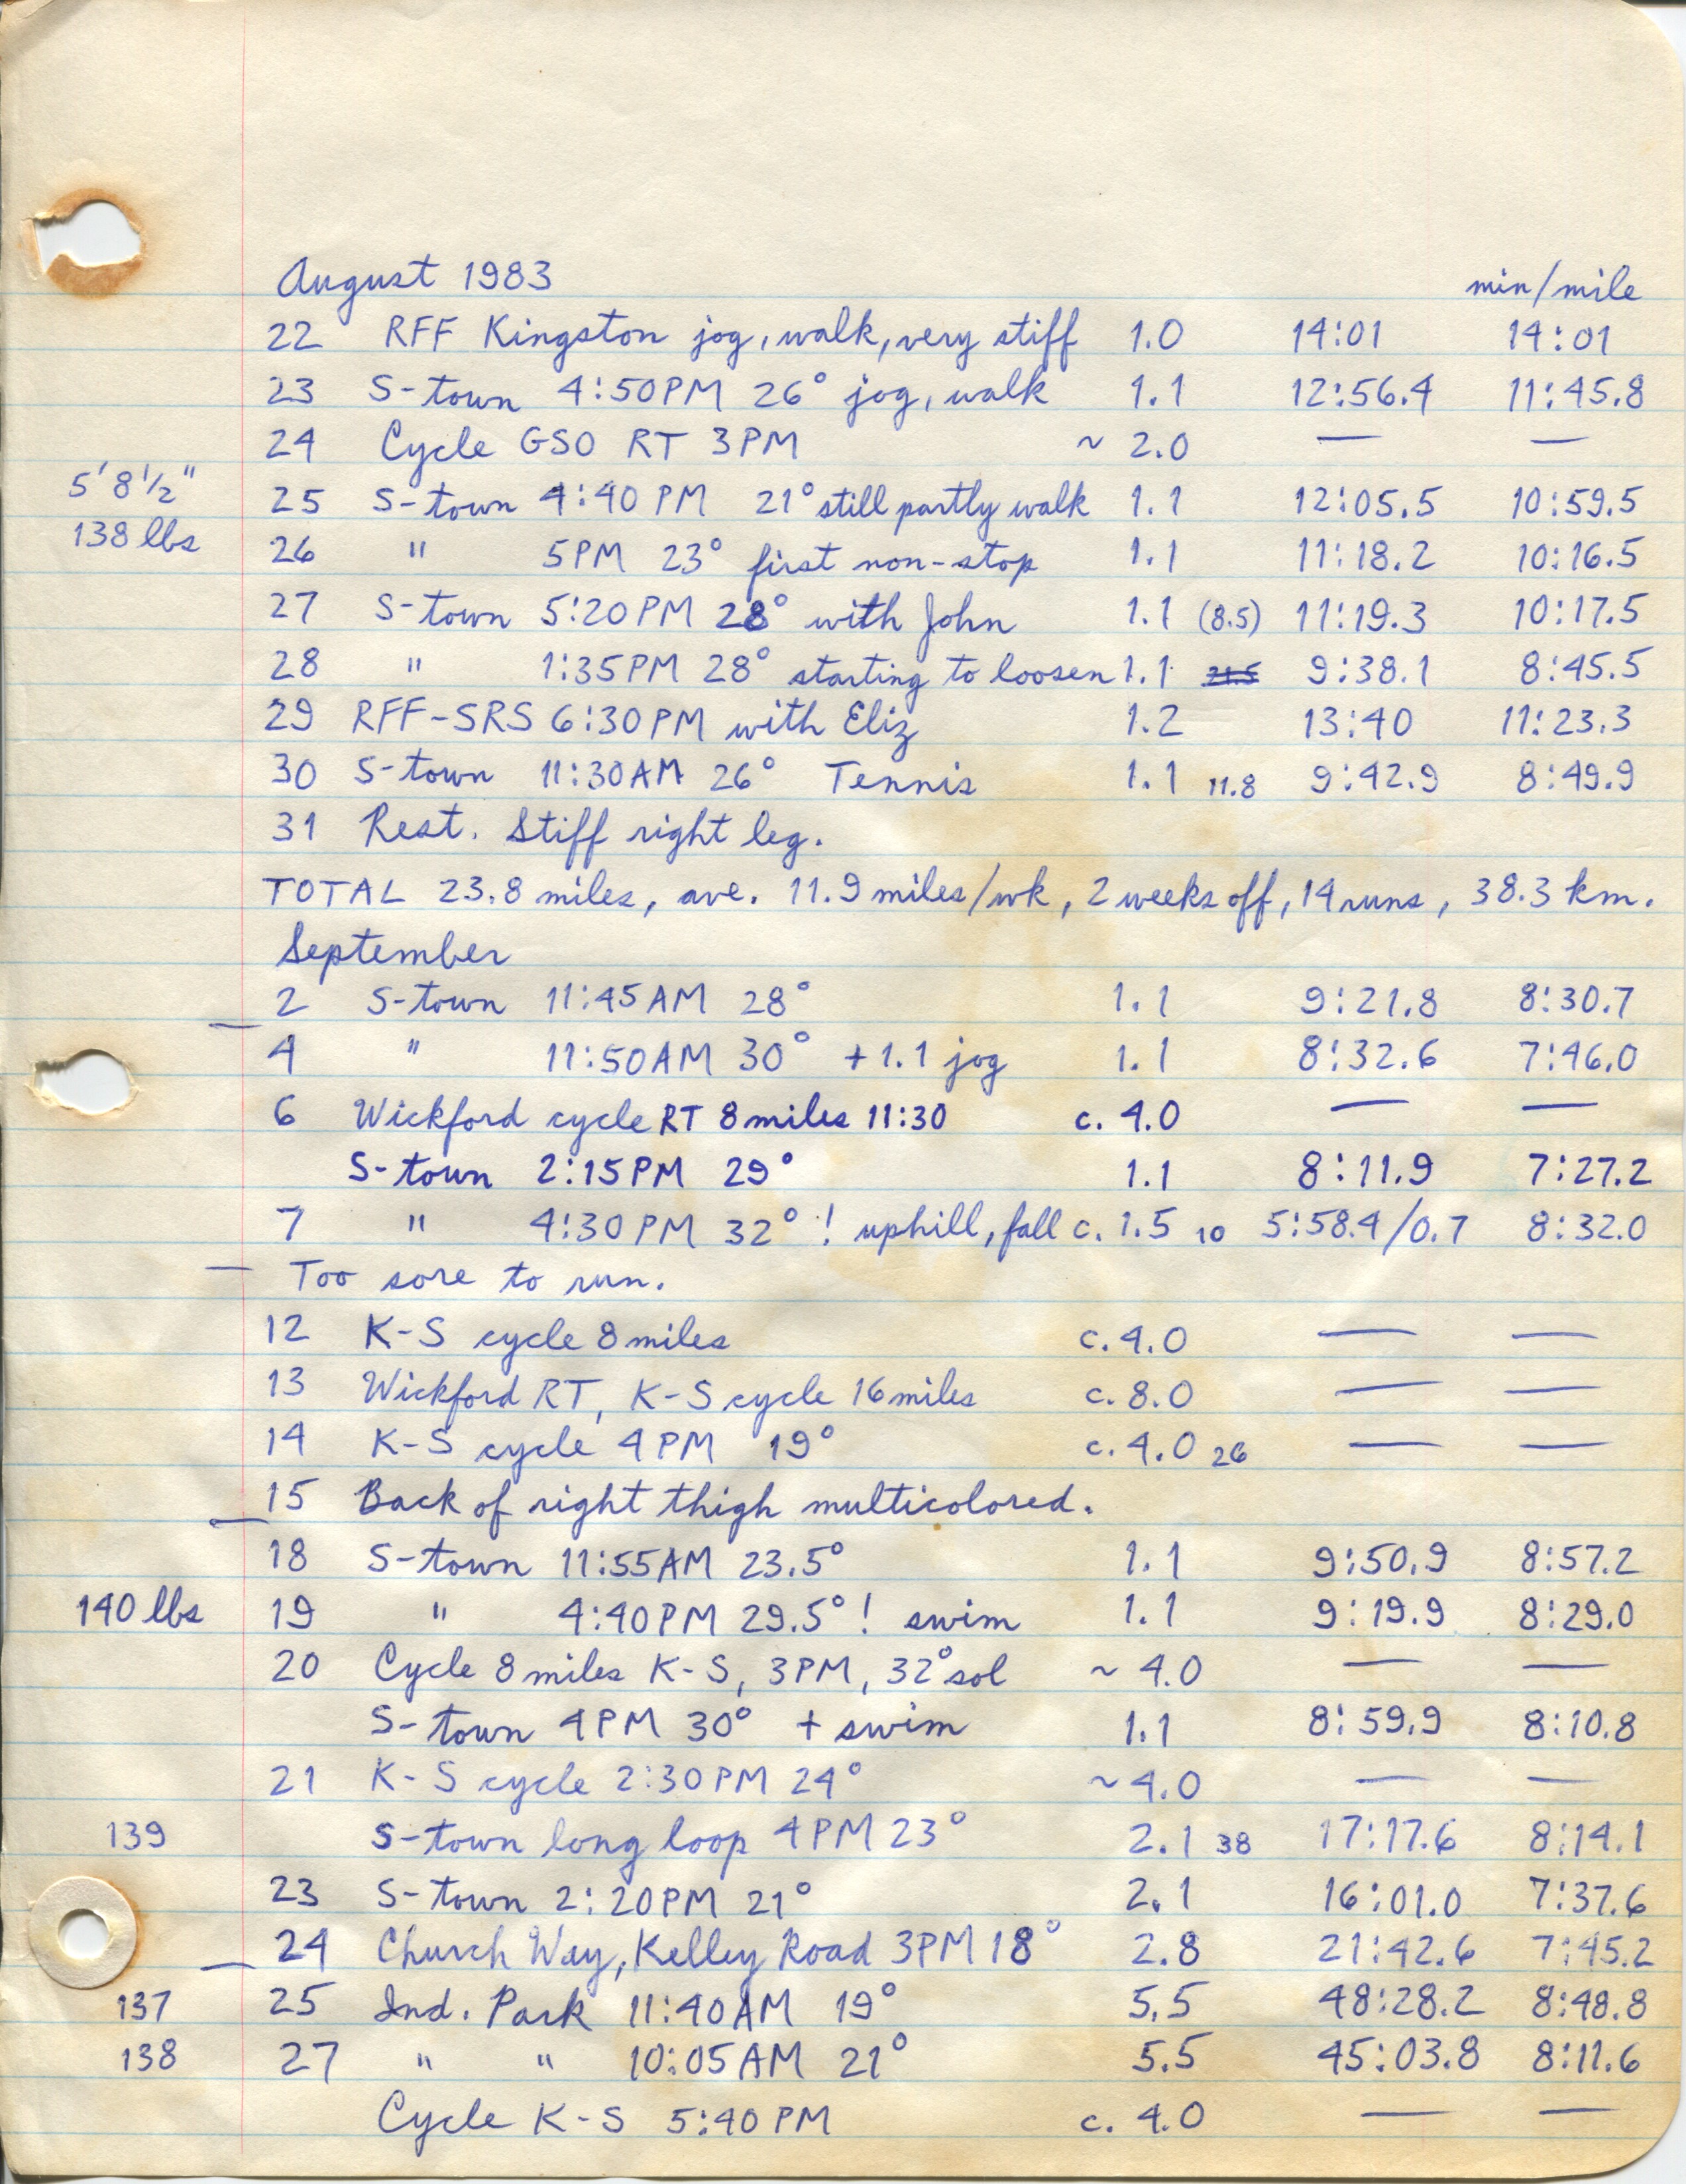 August 1983 min/mile
22 RFF Kingston jog, walk, very stiff 1.0 14:01 14:01
23 S-town 4:50PM 26° jog, walk 1.1 12:56.4 11:45.8
24 Cycle GSO RT 3PM ~ 2.0 — —
5' 8½"
25 S-town 4:40 PM 21° still partly walk 1.1 12:05.5 10:59.5
138 lbs
26 " 5PM 23° first non-stop 1.1 11:18.2 10:16.5
27 S-town 5:20PM 28° with John 1.1 (8.5) 11:19.3 10:17.5
28 " 1:35PM 28° starting to loosen 1.1 9:38.1 8:45.5
29 RFF-SRS 6:30PM with Eliz 1.2 13:40 11:23.3
30 S-town 11:30AM 26° Tennis 1.1 11.8 9:42.9 8:49.9
31 Rest. Stiff right leg.
TOTAL 23.8 miles, ave. 11.9 miles/wk, 2 weeks off, 14 runs, 38.3 km.
September
2 S-town 11:45AM 28° 1.1 9:21.8 8:30.7
4 " 11:50AM 30° +1.1 jog 1.1 8:32.6 7:46.0
6 Wickford cycle RT 8 miles 11:30 c. 4.0 — —
S-town 2:15PM 29° 1.1 8:11.9 7:27.2
7 " 4:30PM 32°! uphill, fall c. 1.5 10 5:58.4/0.7 8:32.0
— Too sore to run.
12 K-S cycle 8 miles c. 4.0 — —
13 Wickford RT, K-S cycle 16 miles c. 8.0 — —
14 K-S cycle 4PM 19° c. 4.0 26 — —
15 Back of right thigh multicolored.
18 S-town 11:55AM 23.5° 1.1 9:50.9 8:57.2
140 lbs 19 " 4:40PM 29.5°! swim 1.1 9:19.9 8:29.0
20 Cycle 8 miles K-S, 3PM, 32° sol ~ 4.0 — —
S-town 4PM 30° + swim 1.1 8:59.9 8:10.8
21 K-S cycle 2:30PM 24° ~ 4.0 — —
139 S-town long loop 4PM 23° 2.1 38 17:17.6 8:14.1
23 S-town 2:20PM 21° 2.1 16:01.0 7:37.6
24 Church Way, Kelley Road 3PM 18° 2.8 21:42.6 7:45.2
137 25 Ind. Park 11:40AM 19° 5.5 48:28.2 8:48.8
138 27 " " 10:05AM 21° 5.5 45:03.8 8:11.6
Cycle K-S 5:40PM c. 4.0 — —